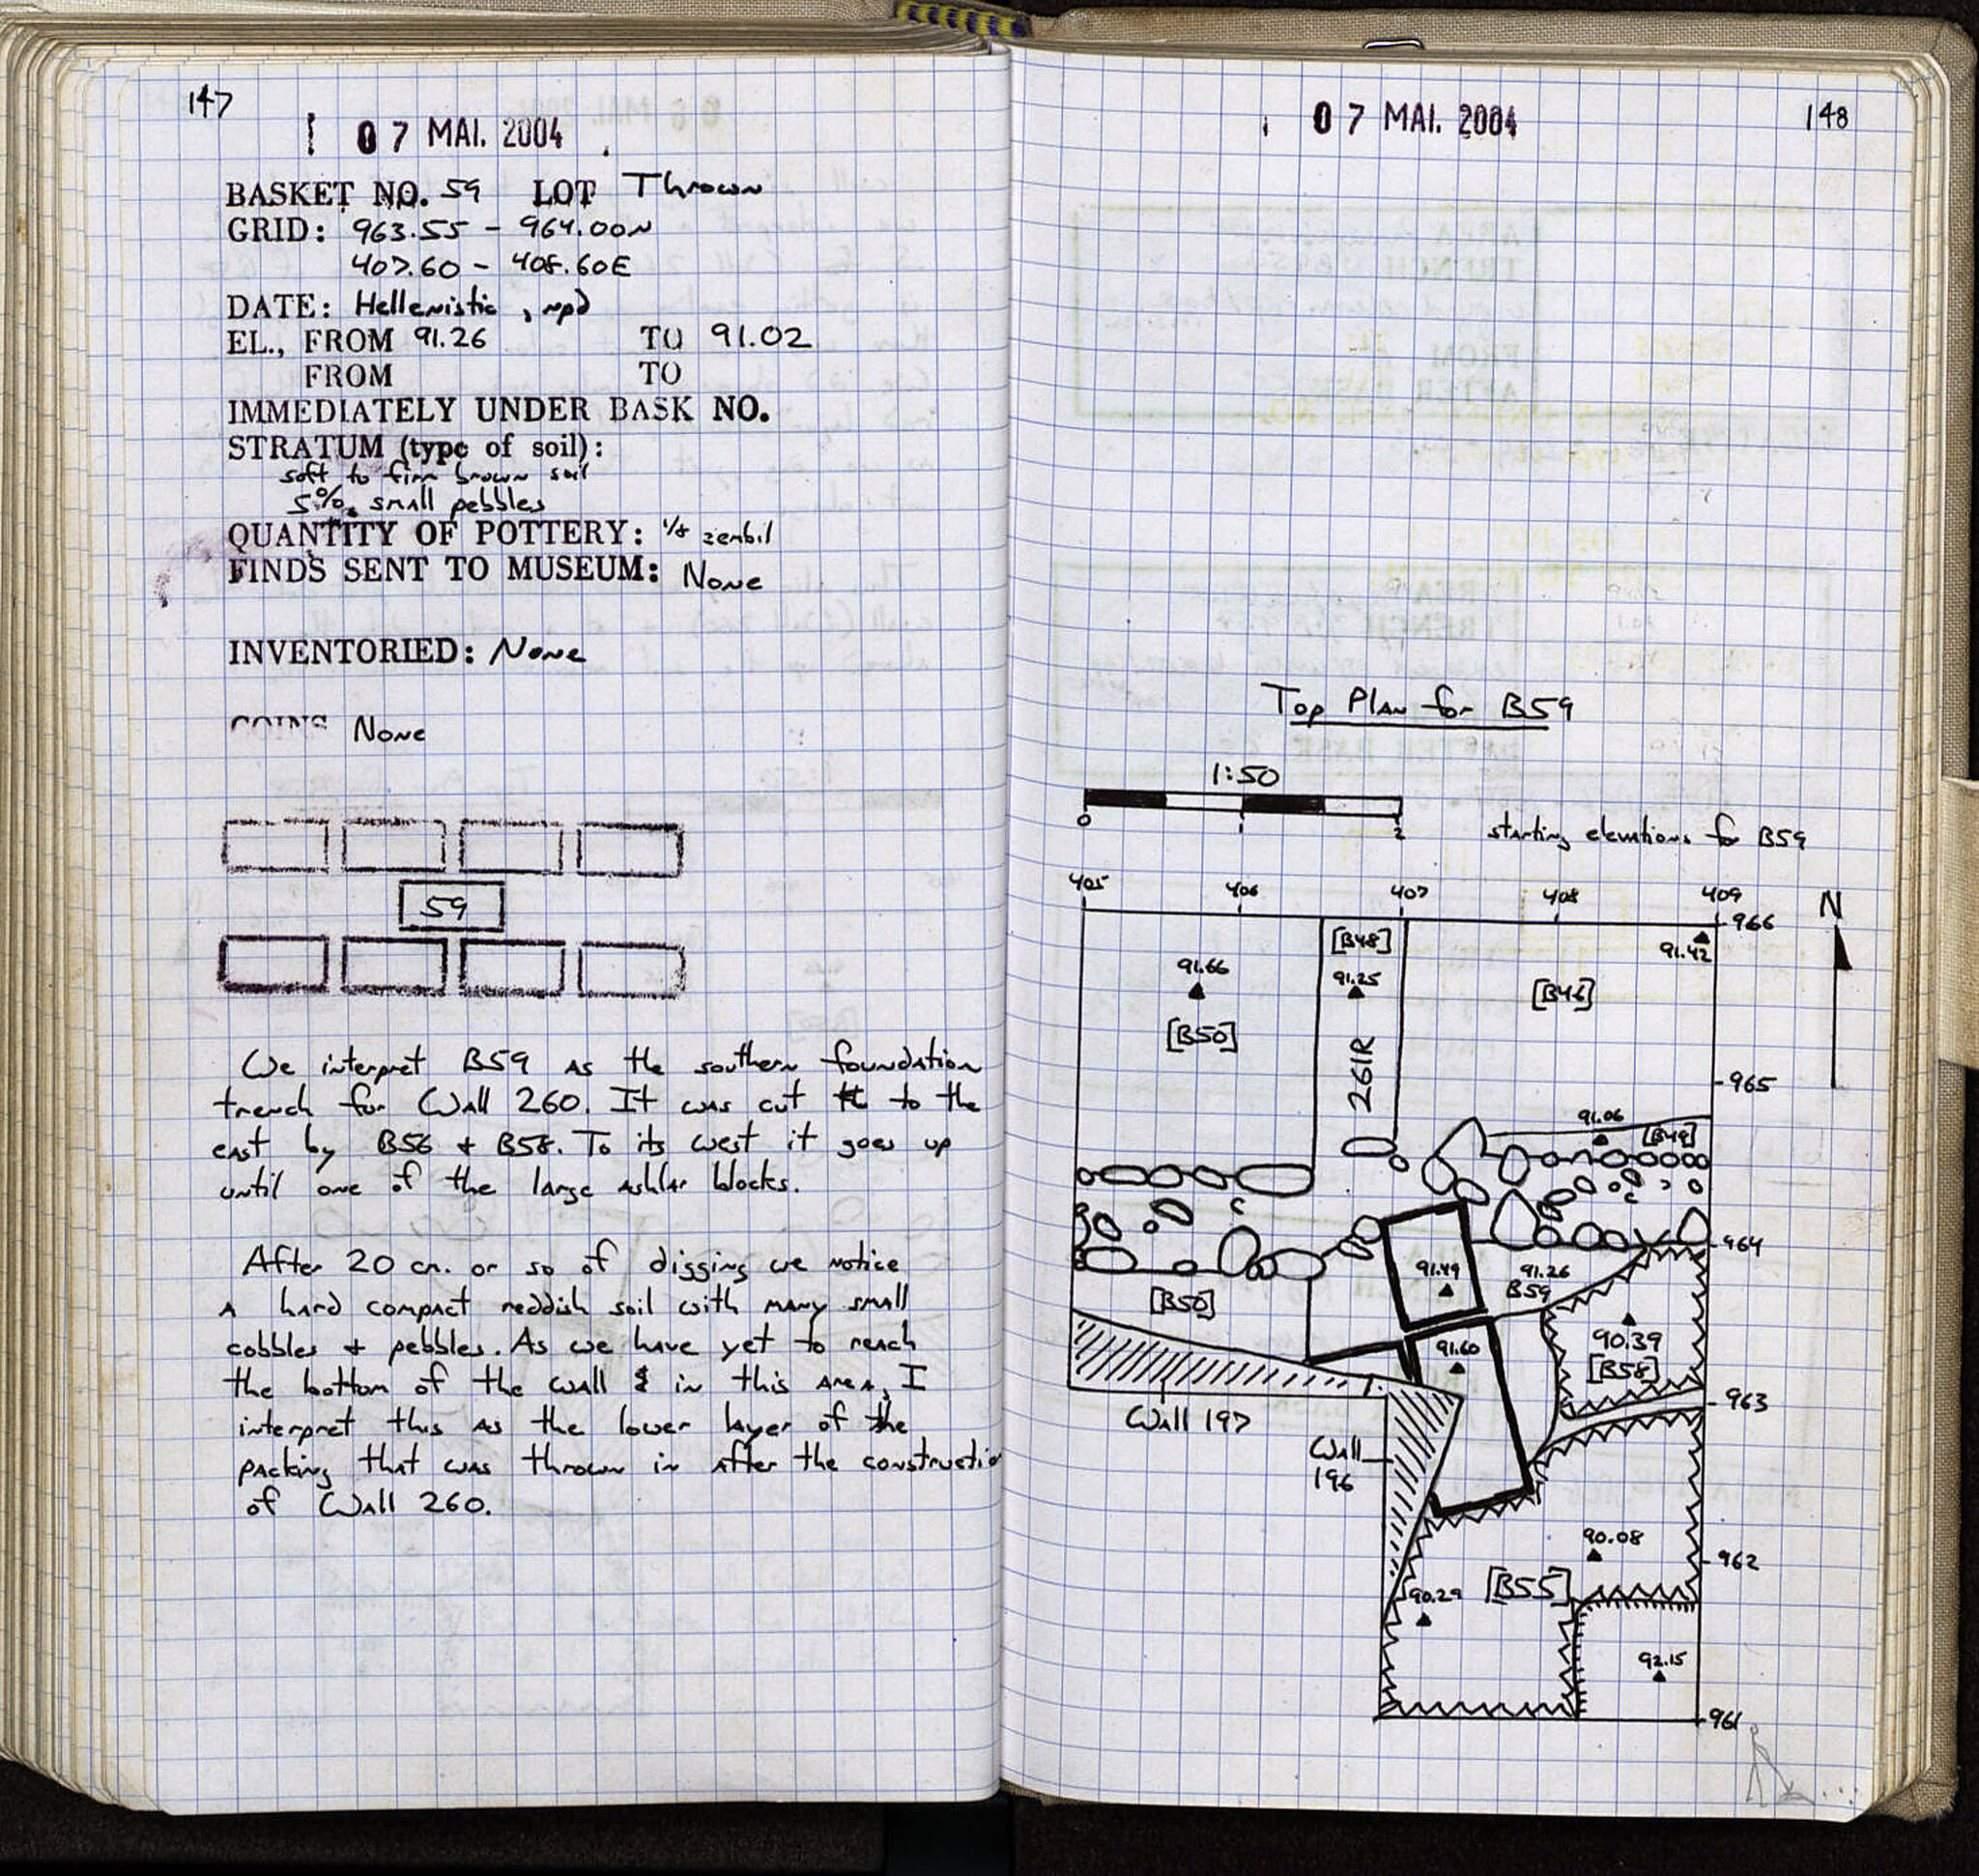 147
07 MAI. 2004
BASKET NO. 59 LOT Thrown
GRID: 963.55 - 964.00N
407.60 - 408.60E
DATE: Hellenistic, npd
EL., FROM 91.26 TO 91.02
FROM TO
IMMEDIATELY UNDER BASK NO.
STRATUM (type of soil):
soft to firm brown soil
5% small pebbles
QUANTITY OF POTTERY: 1/8 zembil
FINDS SENT TO MUSEUM: None
INVENTORIED: None
COINS None
59
We interpret B59 as the southern foundation
trench for Wall 260. It was cut to the
east by B56 + B58. To its west it goes up
until one of the large ashlar blocks.
After 20 cm. or so of digging we notice
a hard compact reddish soil with many small
cobbles + pebbles. As we have yet to reach
the bottom of the wall in this area, I
interpret this as the lower layer of the
packing that was thrown in after the constructio
of Wall 260.
07 MAI. 2004
148
Top Plan for B59
1:50
0 1 2
starting elevations for B59
405 406 407 408 409
N
966
[B48]
91.42
91.66
91.25
[B46]
[B50]
261R
965
91.06
[B49]
964
91.49
91.26
B59
[B50]
90.39
91.60
[B58]
963
Wall 197
Wall
196
90.08
962
90.29
[B55]
92.15
961